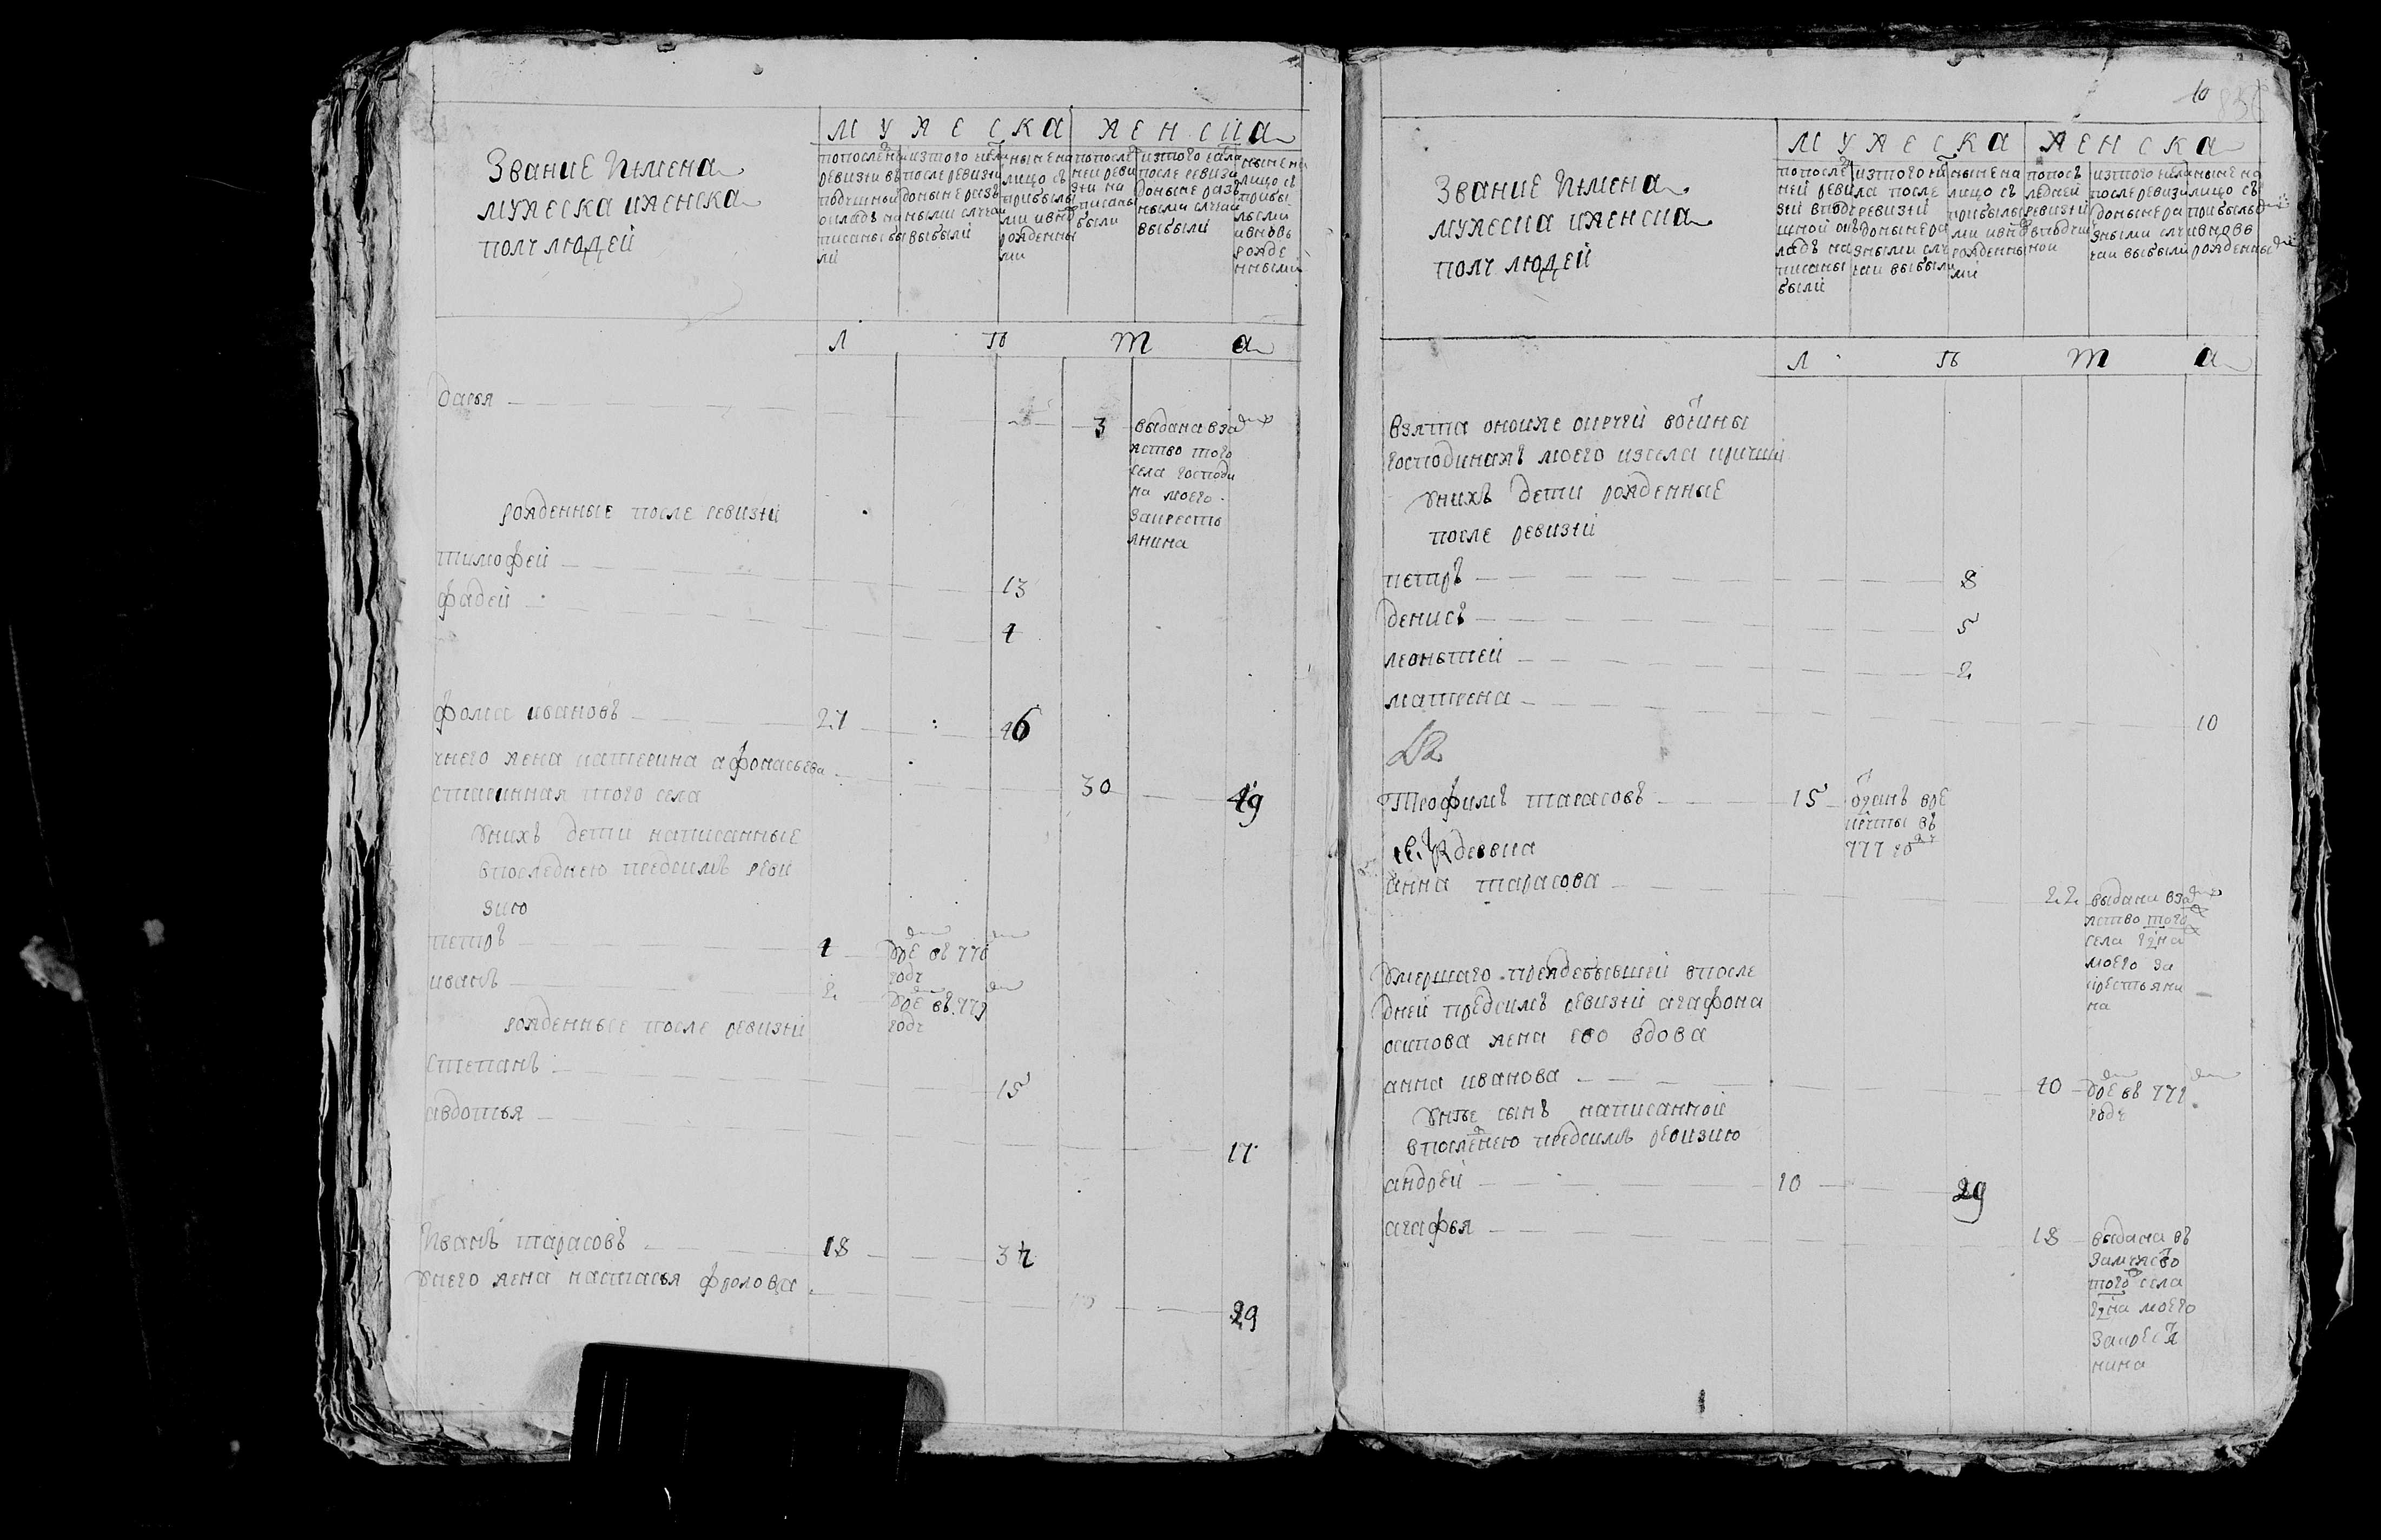 Звание Имена
мужеска иженска
полу людей
М У Ж Е С К А
Ж Е Н С К А
попоследней
ревизии въ
подушный
окладъ на
писаны бы
ли
изтого числа
после ревизии
доныне разъ
ными случаи
выбыли
ныне на
лицо съ
прибылы
ми ивно
рожденны
ми
попосле
ней реви
зии на
писаны
были
изтого числа
после ревизи
доныне разъ
ными случаи
выбыли
ныне на
лицо съ
прибы
лыми
ивновь
рожде
нными
Л Ѣ Т А
дарья 3
выдана вза
мство того
села господи
на моего
закресть
янина
рожденные после ревизии
тимофей 13
фадей 4
фома ивановъ 27 46
унего жена катерина афонасьева 30 49
старинная того села
унихъ дети написанные
впоследнею предсимъ реви
зию
петръ 4
уме въ 776
году
иванъ 2
уме въ 779
году
рожденные после ревизии
степанъ 15
авдотья 17
Иванъ тарасовъ 18 34
унего жена настасья фролова 29
10
Звание Имена
мужеска иженска
полу людей
М У Ж Е С К А
Ж Е Н С К А
попосле
ней реви
зии вподу
шной ок
ладъ на
писаны
были
изтого чи
ла после
ревизии
доныне ра
зными слу
чаи выбыли
ныне на
лицо съ
прибылы
ми ивно
рожденны
ми
попосъ
ледней
ревизии
вподуш
ной
изтого числа
после ревизи
доныне ра
зными слу
чаи выбыли
ныне на
лицо съ
прибылы
ивновь
рожденны
Л Ѣ Т А
взята оноиже округи вотчины
господинажъ моего изсела
унихъ дети рожденные
после ревизии
петръ 8
денисъ 5
леонътей 2
матрена 10
Трофимъ тарасовъ 15
отданъ вре
круты въ
777 го
анна тарасова 22
выдана вза
мство того
села гдна
моего за
крестьяни
на
умершаго преждебывшей впосле
дней предсимъ ревизии агафона
осипова жена ево вдова
анна иванова 40
уме въ 772
году
унее сынъ написанной
впоследнею предсимъ ревизию
андрей 10 29
агафья 18
выдана въ
замужство
того села
гдна моего
закрестья
нина